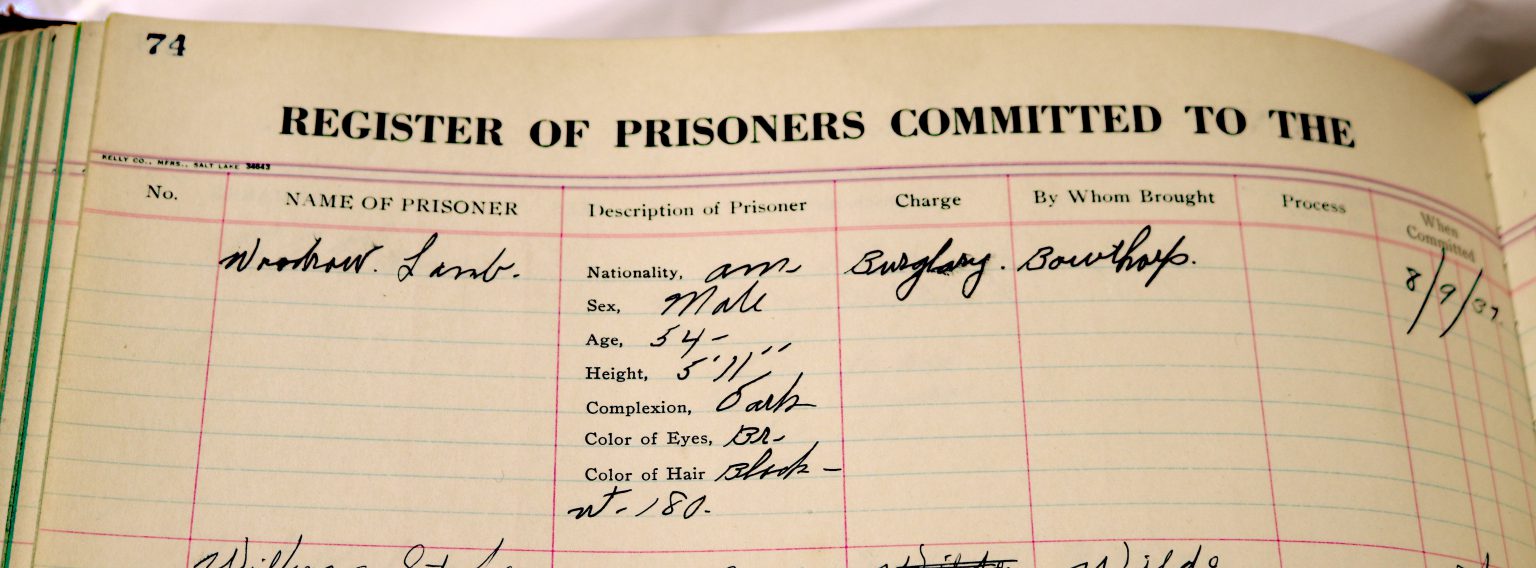 74
REGISTER OF PRISONERS COMMITTED TO THE
KELLY CO., MFRS., SALT LAKE 34643
No. NAME OF PRISONER Description of Prisoner Charge By Whom Brought Process When Committed
Woodrow. Lamb. Nationality, am- Burglary. Bowthorp. 8/9/37.
Sex, Male
Age, 54-
Height, 5'11''
Complexion, Dark
Color of Eyes, Br-
Color of Hair Black-
wt- 180.